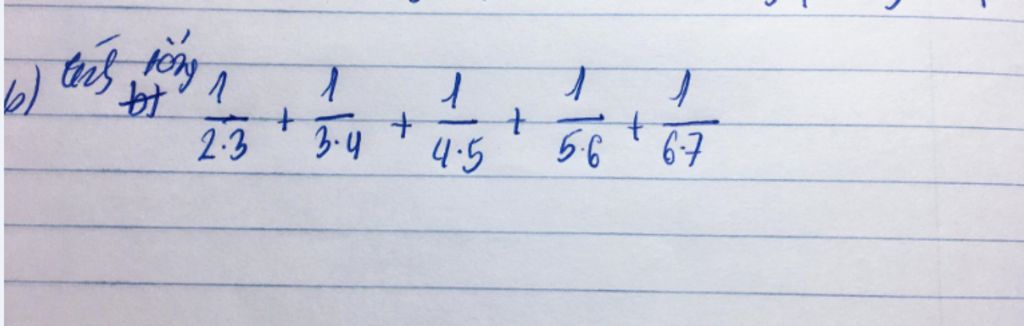 b) tính tổng
1/2·3 + 1/3·4 + 1/4·5 + 1/5·6 + 1/6·7